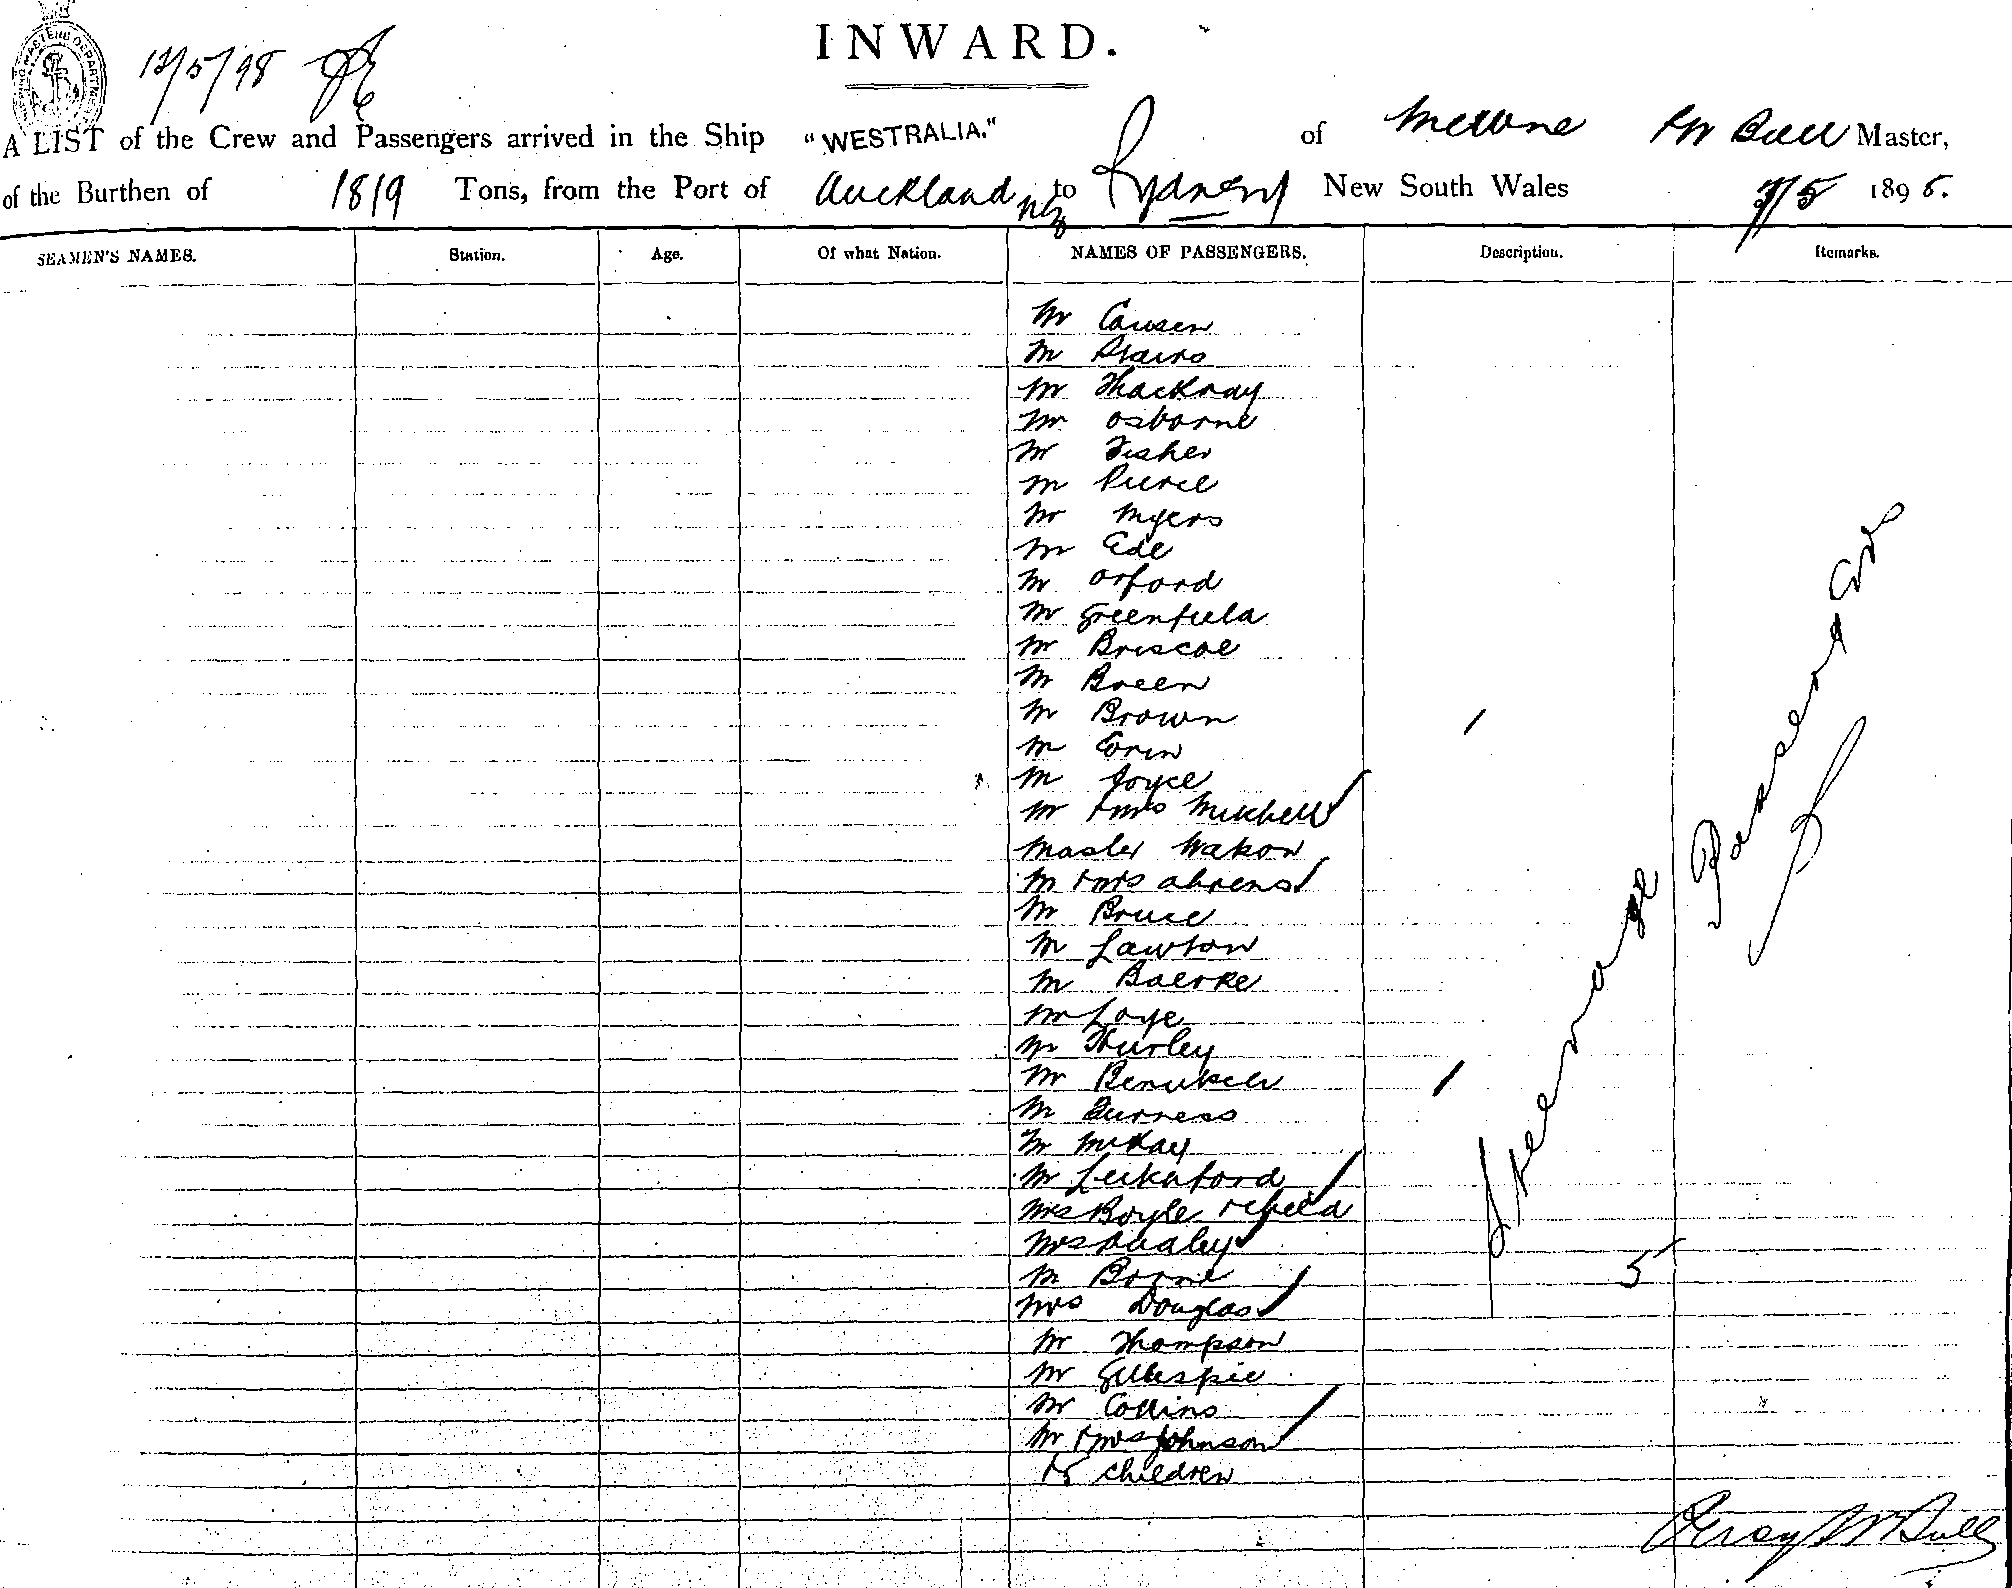 12/5/98
INWARD.
A LIST of the Crew and Passengers arrived in the Ship "WESTRALIA." of Melbne PW Bull Master,
of the Burthen of 1819 Tons, from the Port of Auckland NZ to Sydney New South Wales 7/5 1898.
SEAMEN'S NAMES. Station. Age. Of what Nation. NAMES OF PASSENGERS. Description. Remarks.
Mr
Mr Stairs
Mr Thackray
Mr Osborne
Mr Fisher
Mr Pierce
Mr Myers
Mr Ede
Mr Orford
Mr Greenfield
Mr Briscoe
Mr Breen
Mr Brown
Mr
Mr Joyce
Mr & Mrs Mitchell
Master
Mr & Mrs Ahrens
Mr Bruce
Mr Lawton
Mr
Mr Loye
Mr Thurley
Mr
Mr Furness
Mr McKay
Mr
Mrs Boyle & child
Mrs
Mr Borne
Mrs Douglas
Mr Thompson
Mr Gillespie
Mr Collins
Mr & Mrs Johnson
& 5 children
Steerage
Passengers
5
W Bull